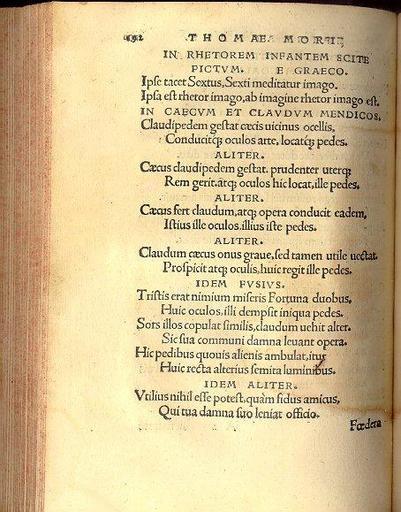 192 THOMAE MORI
IN RHETOREM INFANTEM SCITE
PICTVM. E GRAECO.
Ipse tacet Sextus, Sexti meditatur imago.
Ipsa est rhetor imago, ab imagine rhetor imago est.
IN CAECVM ET CLAVDVM MENDICOS.
Claudipedem gestat cæcis uicinus ocellis,
Conducitq; oculos arte, locatq; pedes.
ALITER.
Cæcus claudipedem gestat. prudenter uterq;
Rem gerit. atq; oculos hic locat, ille pedes.
ALITER.
Cæcus fert claudum, atq; opera conducit eadem,
Istius ille oculos. illius iste pedes.
ALITER.
Claudum cæcus onus graue, sed tamen utile uectat.
Prospicit atq; oculis, huic regit ille pedes.
IDEM FVSIVS.
Tristis erat nimium miseris Fortuna duobus,
Huic oculos, illi dempsit iniqua pedes.
Sors illos copulat similis, claudum uehit alter.
Sic sua communi damna leuant opera.
Hic pedibus quouis alienis ambulat, itur
Huic recta alterius semita luminibus.
IDEM ALITER.
Vtilius nihil esse potest, quàm fidus amicus,
Qui tua damna suo leniat officio.
Fœdera